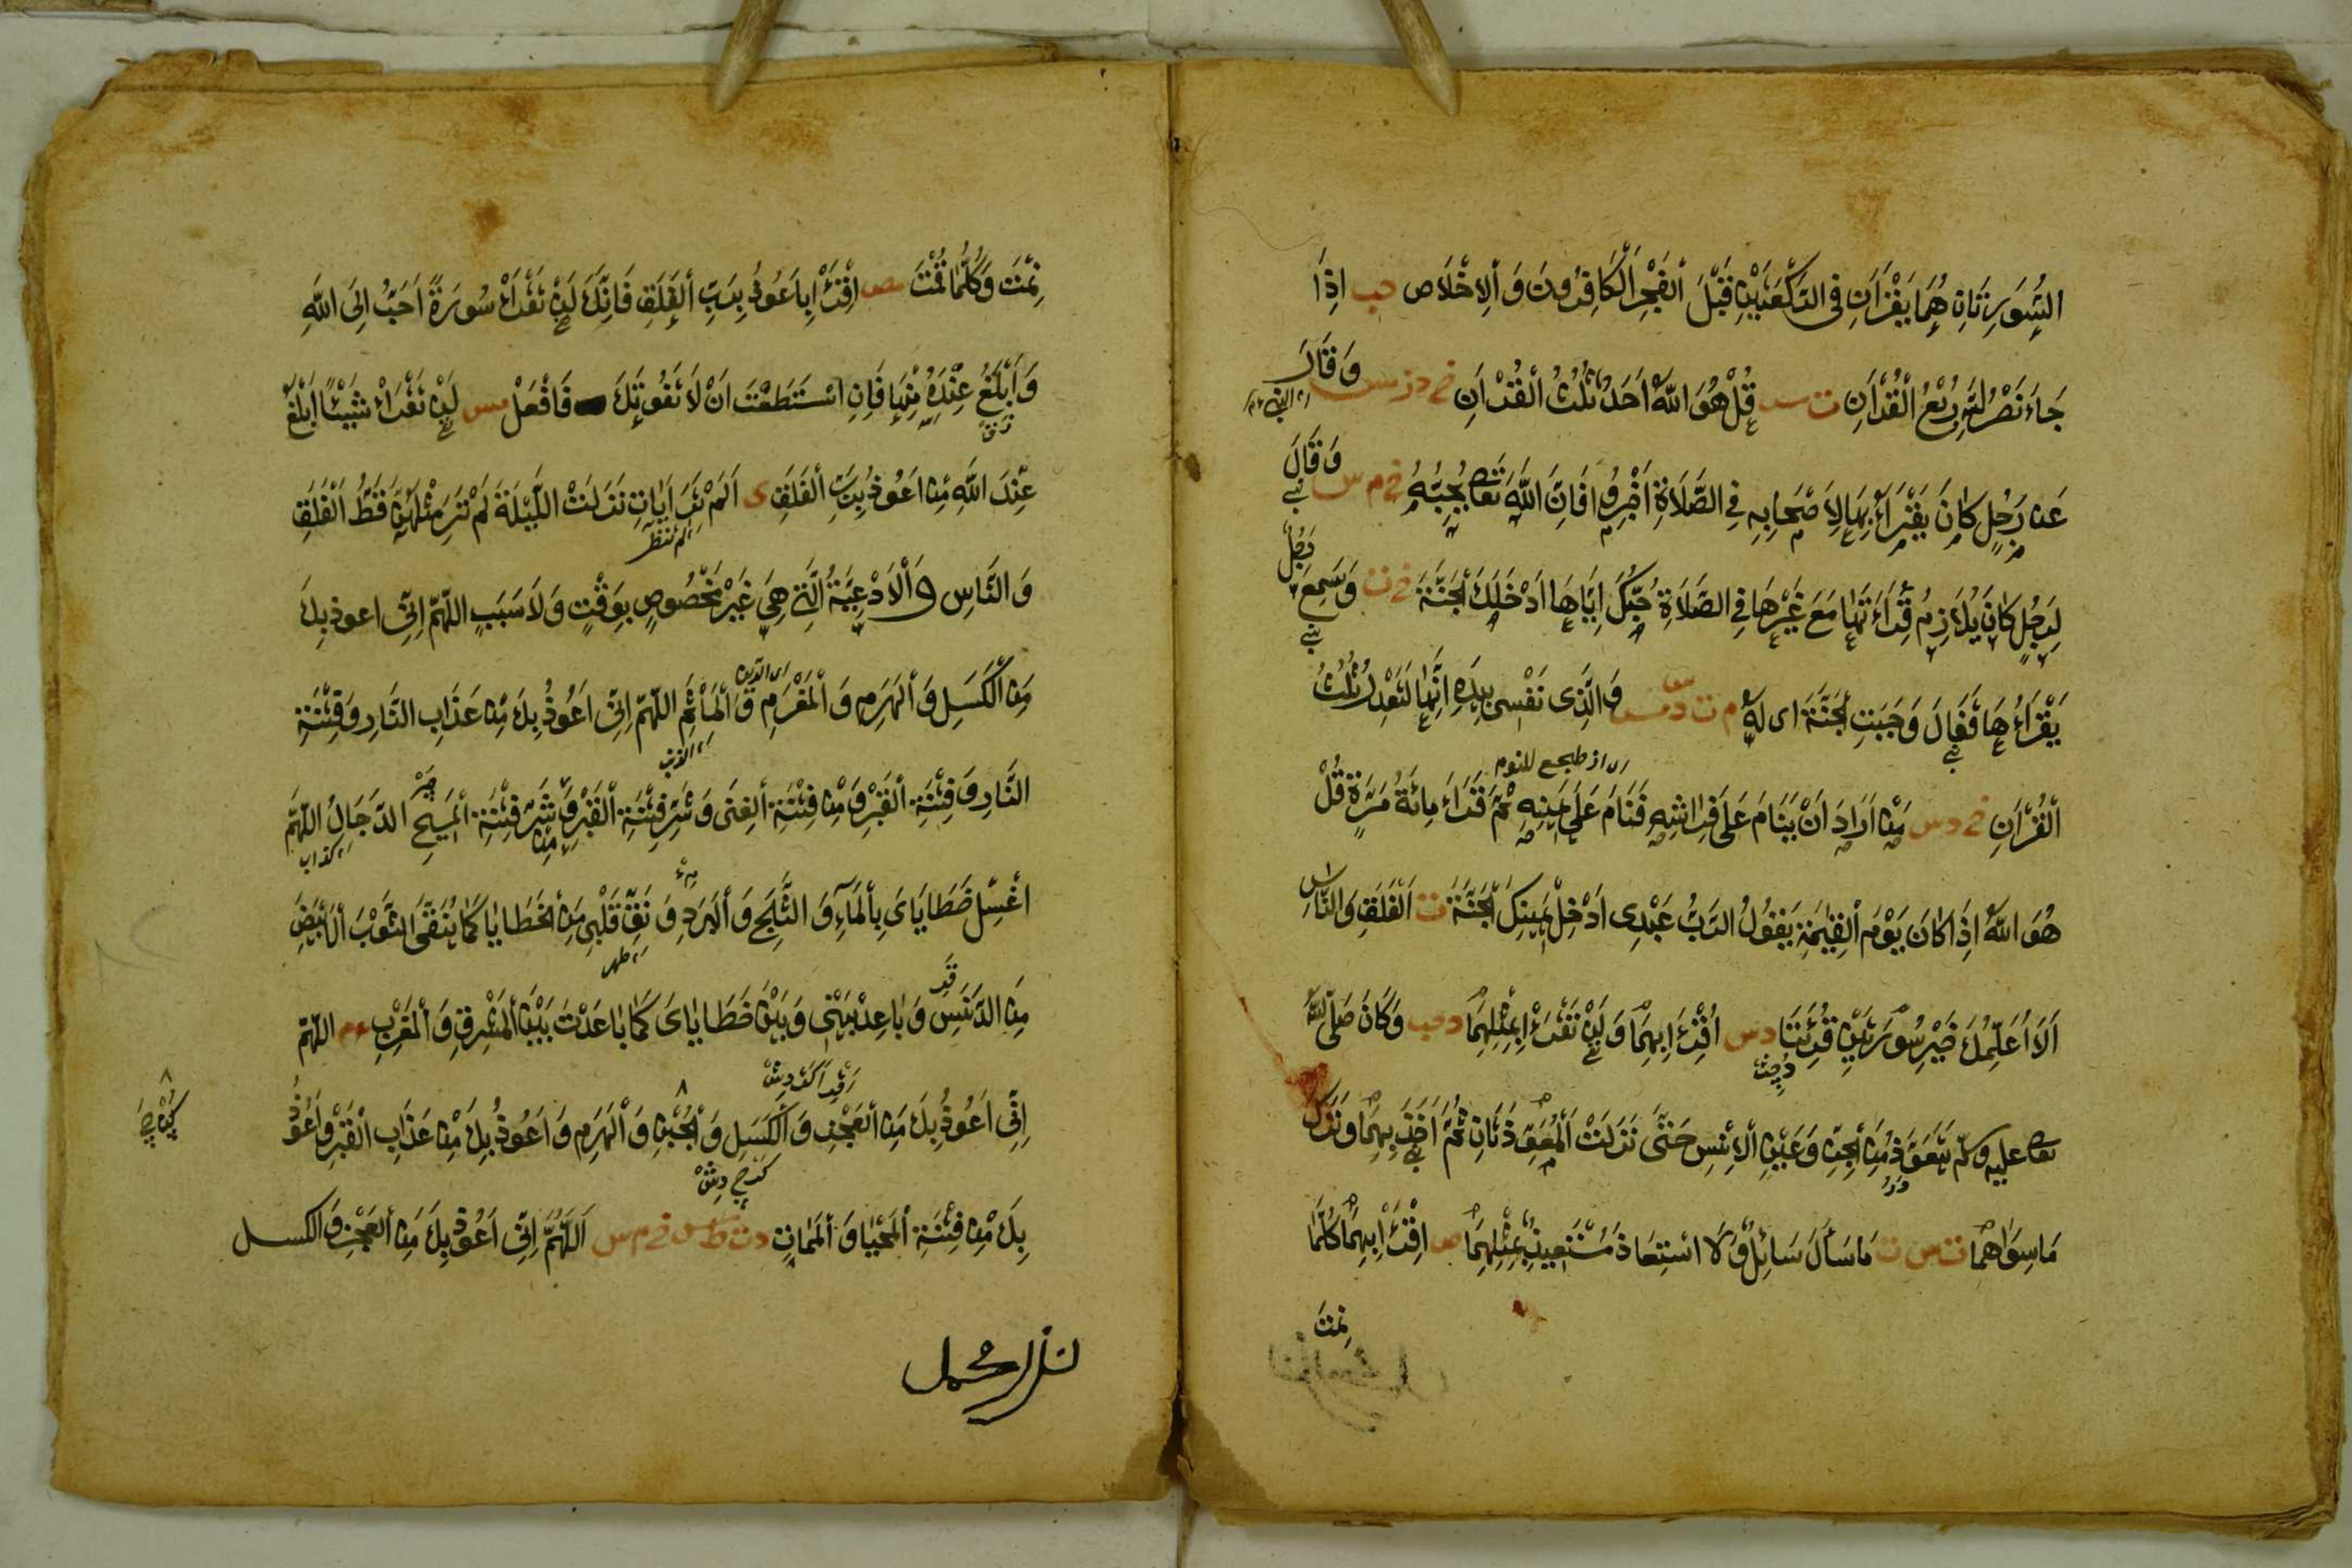 السُّوَرِتَانِ هُمَا يَقْرَاٰنِ فِى الرَّكْعَتَيْنِ قَبْلَ الْفَجْرِ الْكَافِرُونَ وَالْاِخْلَاص حب اِذَا
جَاءَ نَصْرُ اللهِ رُبْعُ الْقُرْاٰنِ ت قُلْ هُوَ اللهُ اَحَدٌ ثُلُثُ الْقُرْاٰنِ خ د ت س وَقَالَ
عَنْ رَجُلٍ كَانَ يَقْرَاُ بِهَا لِاَصْحَابِهِ فِى الصَّلَاةِ اَخْبِرُوا فَاِنَّ اللهَ تَعَا يُحِبُّهُ خ م س وَقَالَ
لِرَجُلٍ كَانَ يُلَازِمُ قِرَاءَتَهَا مَعَ غَيْرِهَا فِى الصَّلَاةِ حُبُّكَ اِيَّاهَا اَدْخَلَكَ الْجَنَّةَ خ ت وَسَمِعَ رَجُلٌ
يَقْرَاُهَا فَقَالَ وَجَبَتِ الْجَنَّةَ اى لَهُ م ت س وَالَّذِى نَفْسِى بِيَدِهِ اِنَّهَا لَتَعْدِلُ ثُلُثُ
اى اذ طجع للنوم
الْقُرْاٰنِ خ د س مَنْ اَرَادَ اَنْ يَنَامَ عَلَى فِرَاشِهِ فَنَامَ عَلَى يَمِينِهِ ثُمَّ قَرَاءَ مِائَةَ مَرَّةٍ قُلْ
هُوَ اللهُ اِذَا كَانَ يَوْمَ الْقِيٰمَةِ يَقُولُ الرَّبُّ عَبْدِى ادْخِلْ يَمِينِكَ الْجَنَّةَ ت الْفَلَقِ وَالنَّاسِ
اَلَا اُعَلِّمُكَ خَيْرَ سُورَتَيْنِ قُرِئَتَا د س اُقْرَءْ بِهِمَا وَلَنْ تَقْرَءْ بِمِثْلِهِمَا د حب وَكَانَ صَلَّى اللهُ
تعا عليه وسلم يَتَعَوَّذُ مِنَ الْجِنِّ وَعَيْنِ الْاِنْسِ حَتَّى نَزَلَتْ الْمُعَوِّذَتَانِ ثُمَّ اَخَذَ بِهِمَا وَتَرَكَ
مَا سِوَاهُمَا ت س ق مَا سَأَلَ سَائِلٌ وَلَا اسْتِعَاذَ مُسْتَعِيذٌ بِمِثْلِهِمَا مص اِقْرَءْ بِهِمَا كُلَّمَا
نِمْتَ
نِمْتَ وَكُلَّمَا قُمْتَ مص اِقْرَءْ بِاَعُوذُ بِرَبِّ الْفَلَقِ فَاِنَّكَ لَنْ تَقْرَاَ سُورَةً اَحَبُّ اِلَى اللهِ
وَاَبْلَغُ عِنْدَهُ مِنْهَا فَاِنِ اسْتَطَعْتَ اَنْ لَا تَفُوتَكَ فَافْعَلْ مس لَنْ تَقْرَاَ شَيْئًا اَبْلَغُ
عِنْدَ اللهِ مِنْ اَعُوذُ بِرَبِّ الْفَلَقِ ى اَلَمْ تَرَ اٰيَاتٍ نَزَلَتْ اللَّيْلَةَ لَمْ تَرَ مِثْلَهُنَّ قَطُّ الْفَلَقِ
اى لم تنظر
وَالنَّاسِ وَالْاَدْعِيَّةُ الَّتِى هِىَ غَيْرُ مَخْصُوصٍ بِوَقْتٍ وَلَا سَبَبٍ اللّهُمَّ اِنِّى اعوذ بِكَ
اى الدين
مِنَ الْكَسَلِ وَالْهَرَمِ وَالْمَغْرَمِ وَالْمَأْثَمِ اللّهُمَّ اِنِّى اَعُوذُ بِكَ مِنْ عَذَابِ النَّارِ وَفِتْنَةِ
اى الذنب
النَّارِ وَفِتْنَةِ الْقَبْرِ وَمِنْ فِتْنَةِ الْغِنَى وَشَرِّ فِتْنَةِ الْفَقْرِ وَمِنْ شَرِّ فِتْنَةِ الْمَسِيحِ الدَّجَالِ اللّهُمَّ
اى كذاب
اغْسِلْ خَطَايَاىَ بِالْمَاءِ وَالثَّلْجِ وَالْبَرَدِ وَنَقِّ قَلْبِى مِنَ الْخَطَايَا كَمَا يُنَقَّى الثَّوْبَ الْاَبْيَضِ
اى طهر
مِنَ الدَّنَسِ وَبَاعِدْ بَيْنِى وَبَيْنَ خَطَايَاىَ كَمَا بَاعَدْتَ بَيْنَ الْمَشْرِقِ وَالْمَغْرِبِ ع اللّهُمَّ
اِنِّى اَعُوذُ بِكَ مِنَ الْعَجْزِ وَالْكَسَلِ وَالْجُبْنِ وَالْهَرَمِ وَاَعُوذُ بِكَ مِنْ عَذَابِ الْقَبْرِ وَاَعُوذُ
بِكَ مِنْ فِتْنَةِ الْمَحْيَا وَالْمَمَاتِ خ م س اَللّهُمَّ اِنِّى اَعُوذُ بِكَ مِنَ الْعَجْزِ وَالكسل